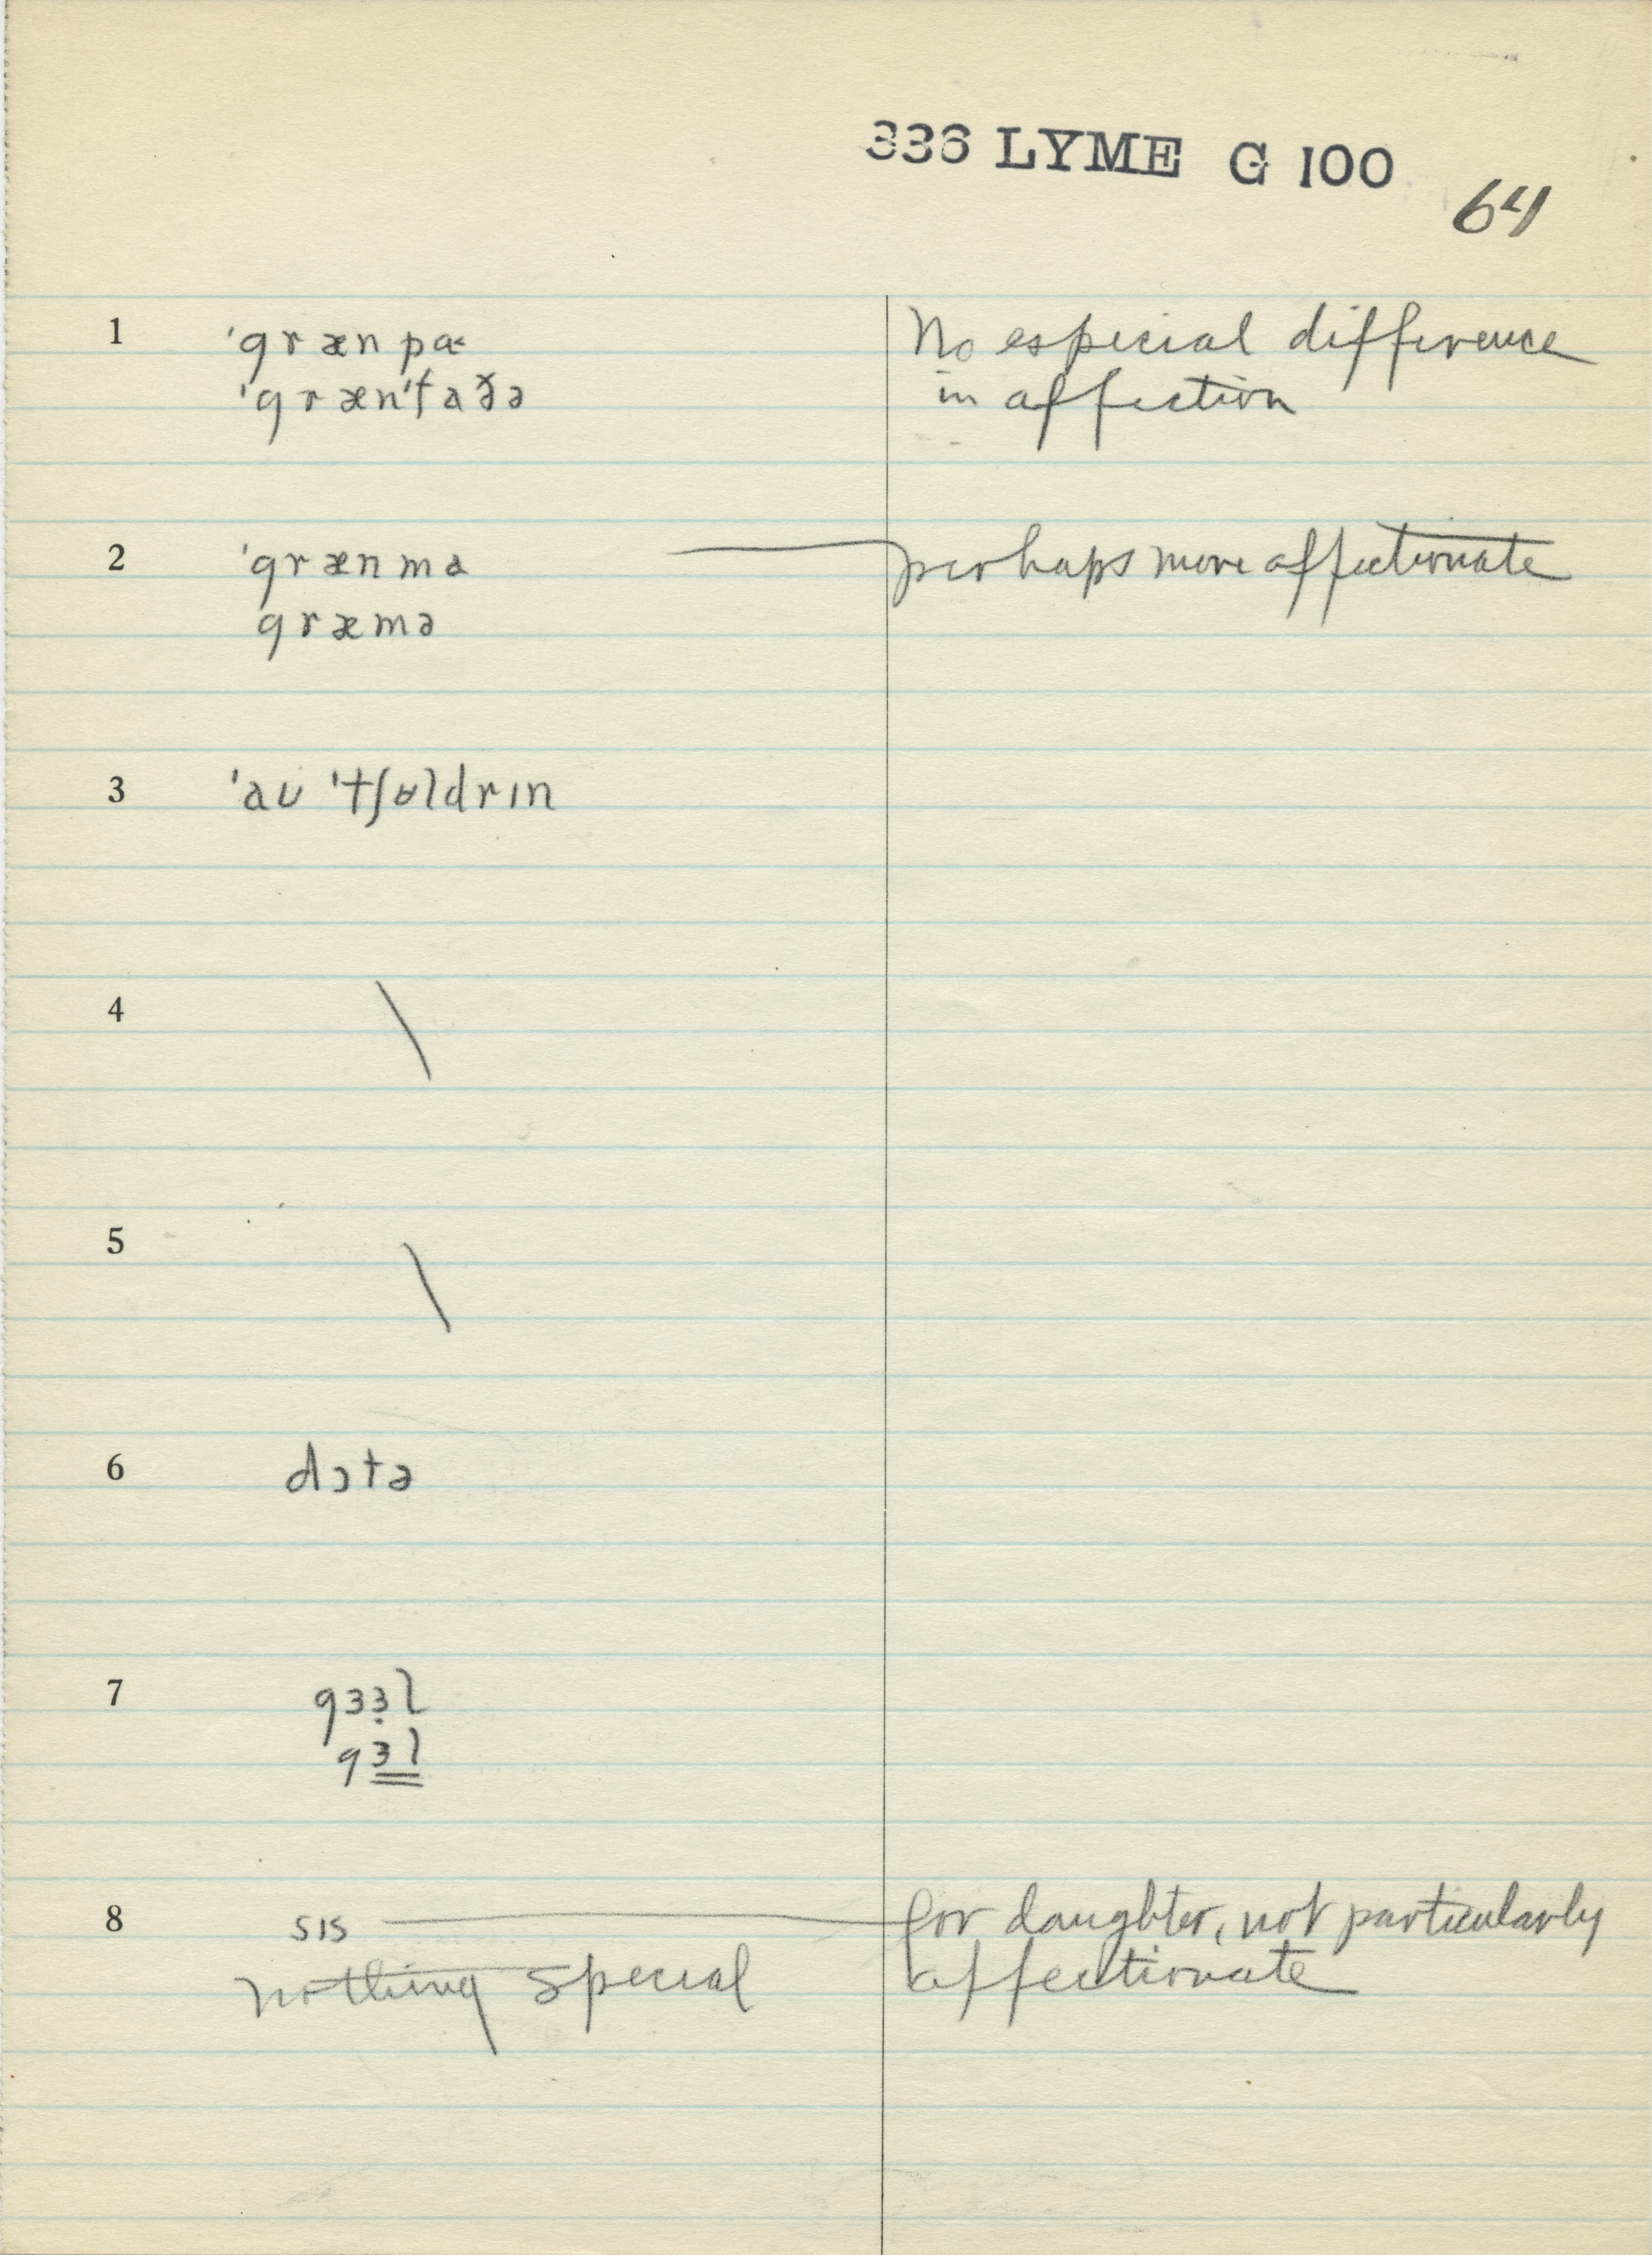 336 LYME G 100
64
1 ˈgrænpɑ˂ No especial difference
ˈgrænˈfaðə in affection
2 ˈgrænmɑ perhaps more affectionate
græmə
3 ˈaʊ ˈtʃʊldrɪn
4 \
5 \
6 dɔtə
7 gɜɜ̣l
gɜ̳l̳
8 sɪs for daughter, not particularly
nothing special affectionate